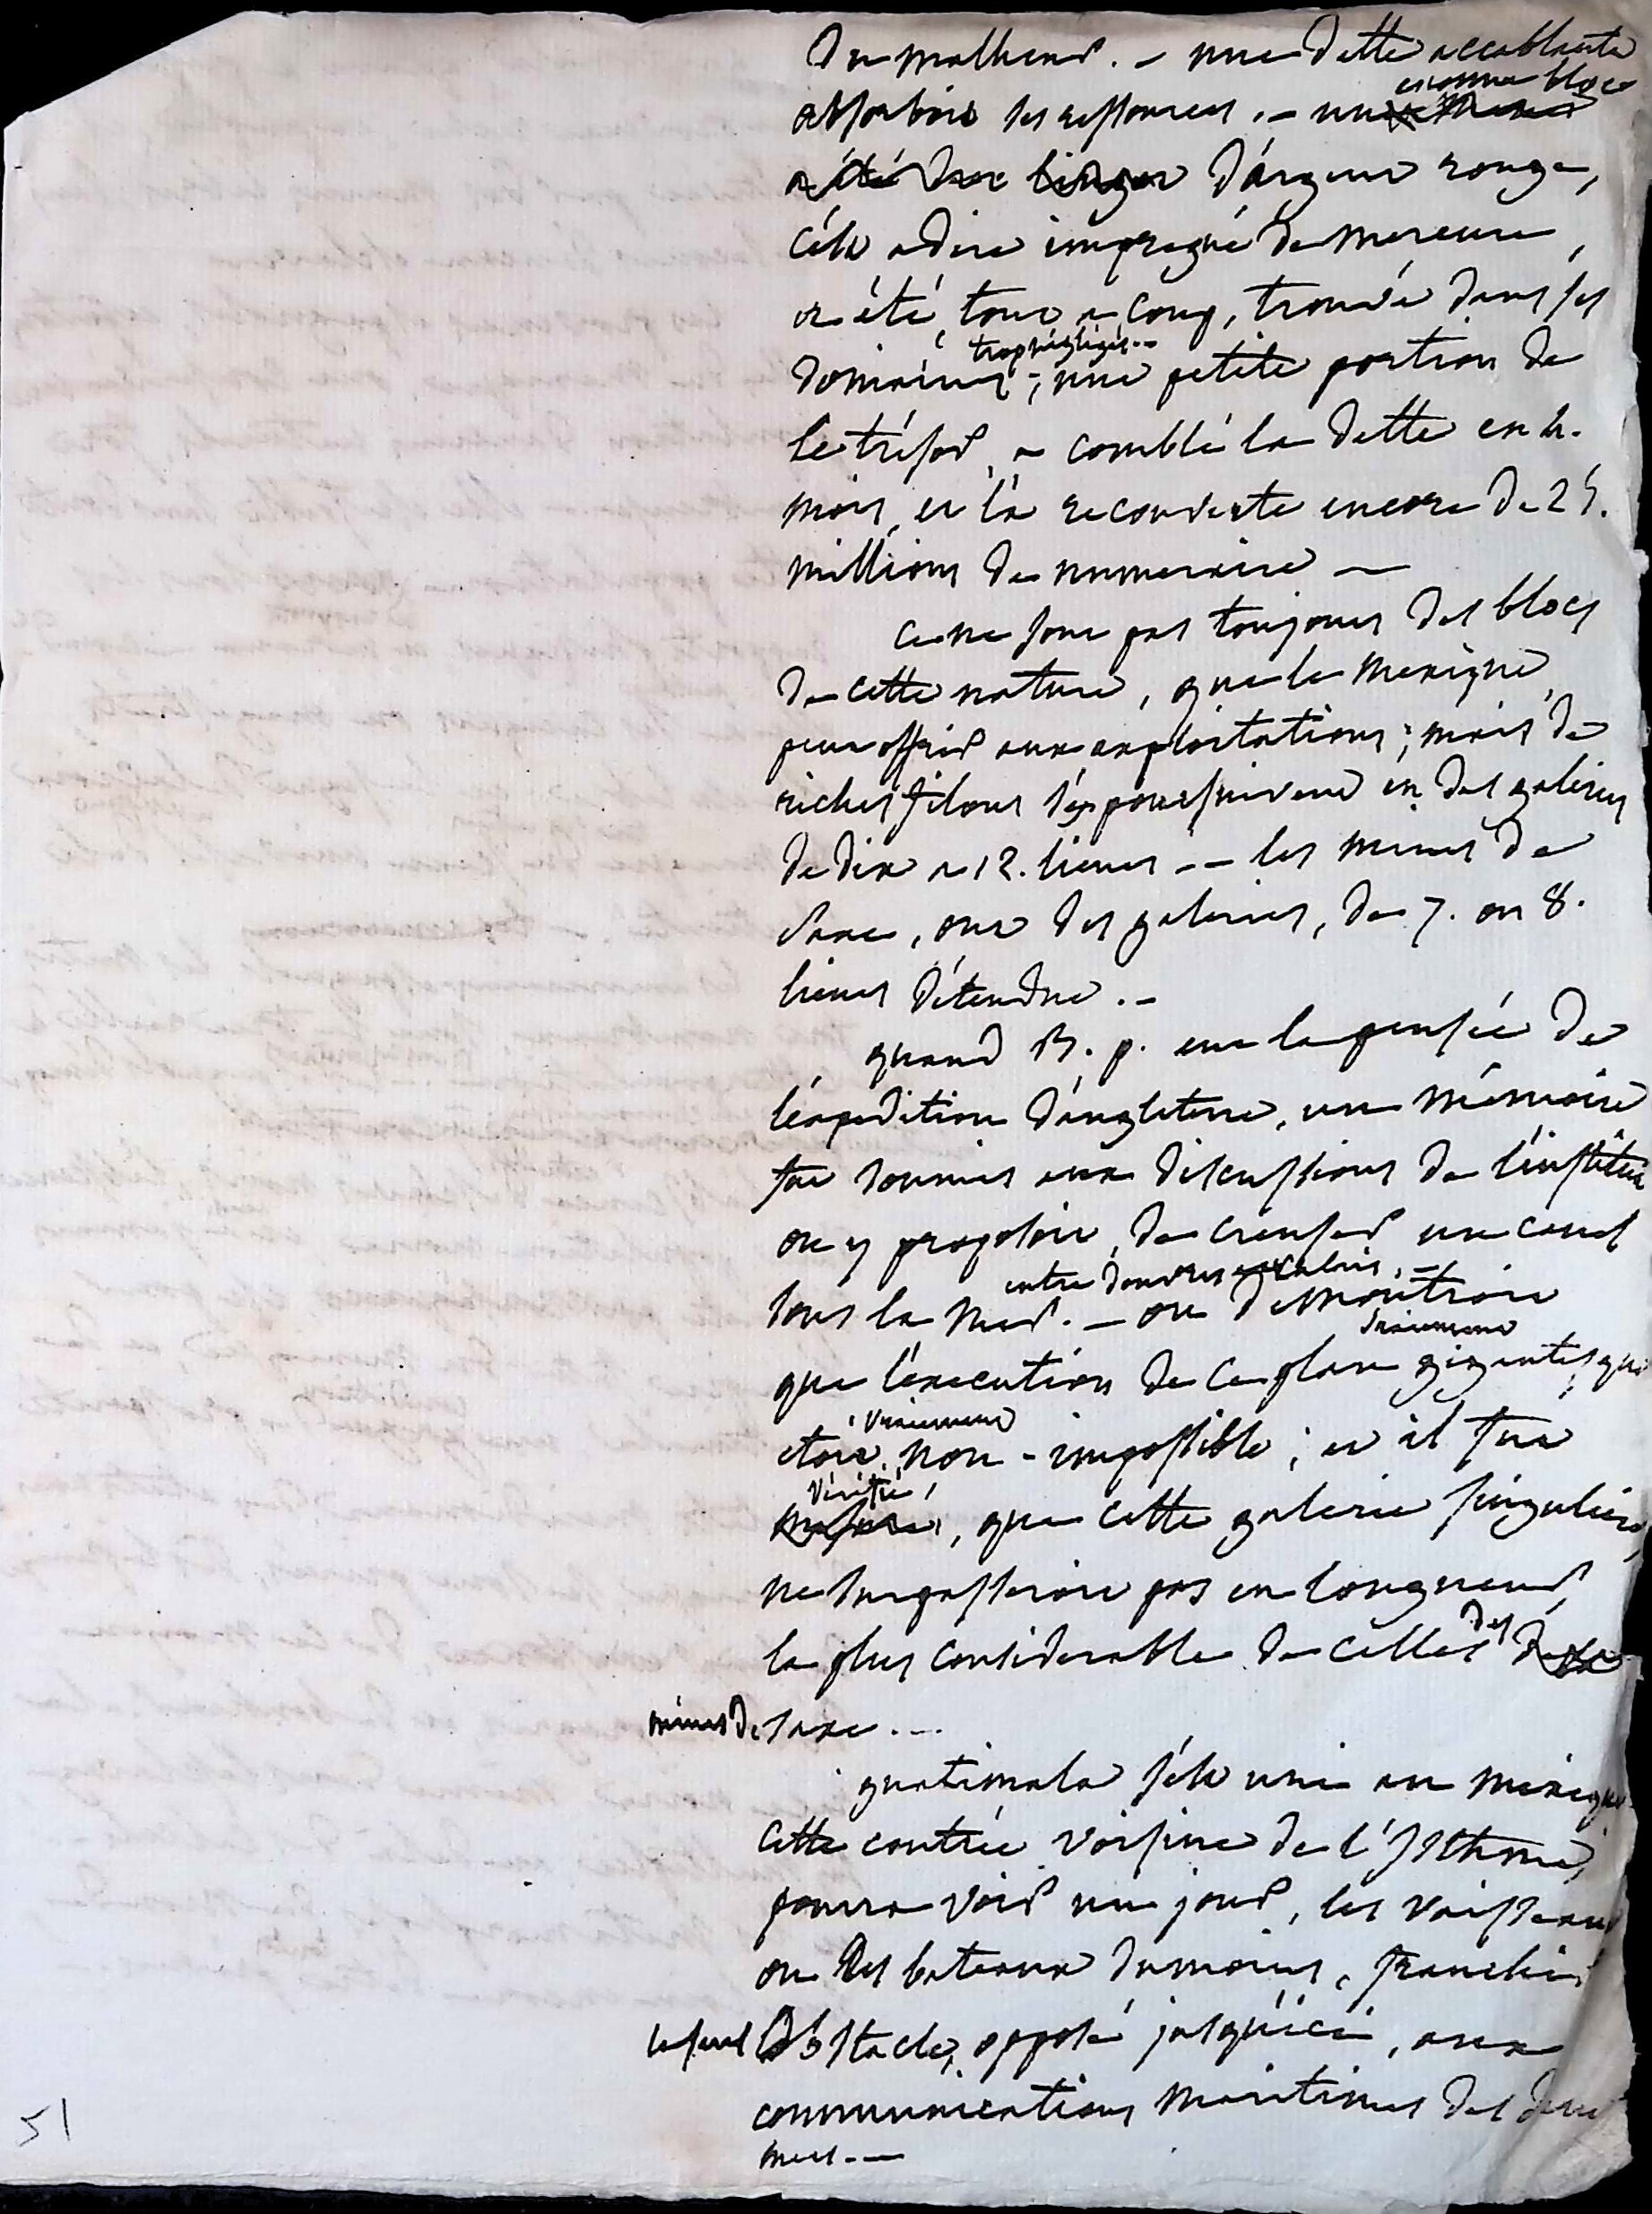 du malheur. – une dette accablante
enorme bloc
absorboit ses ressources. – un
a été d'argent rouge,
c'est a dire impregné de mercure,
a été, tout a coup, trouvé dans ses
trop négligés..
domaines; une petite portion de
ce trésor, a comblé la dette en 2.
mois, et l'a recouverte encore de 25.
millions de numeraire –
ce ne sont pas toujours des blocs
de cette nature, que le mexique,
peut offrir aux exploitations; mais de
riches filons s'y poursuivent en des galeries
de dix a 12. lieues -- les mines de
Saxe, ont des galeries, de 7. ou 8.
lieues d'étendue. –
quand B. p. eut la pensée de
l'expedition d'angleterre, un mémoire
fut soumis aux discussions de l'institut
on y proposoit, de creuser un canal
entre Douvres et Calais, –
sous la mer. – on demontroit
vraiement
que l'execution de ce plan gigantesque
vraiement
etoit, non - impossible; et il fut
vérifié,
, que cette galerie singuliere,
ne surpasseroit pas en longueur,
la plus considerable de celles des
mines de Saxe. --
guatimala s'est uni au mexique
cette contrée voisine de l'Isthme,
pourra voir un jour, les vaisseaux
ou des bateaux du moins, franchir
le seul obstacle, opposé jusqu'ici, aux
communications maritimes des deux
mers. –
51